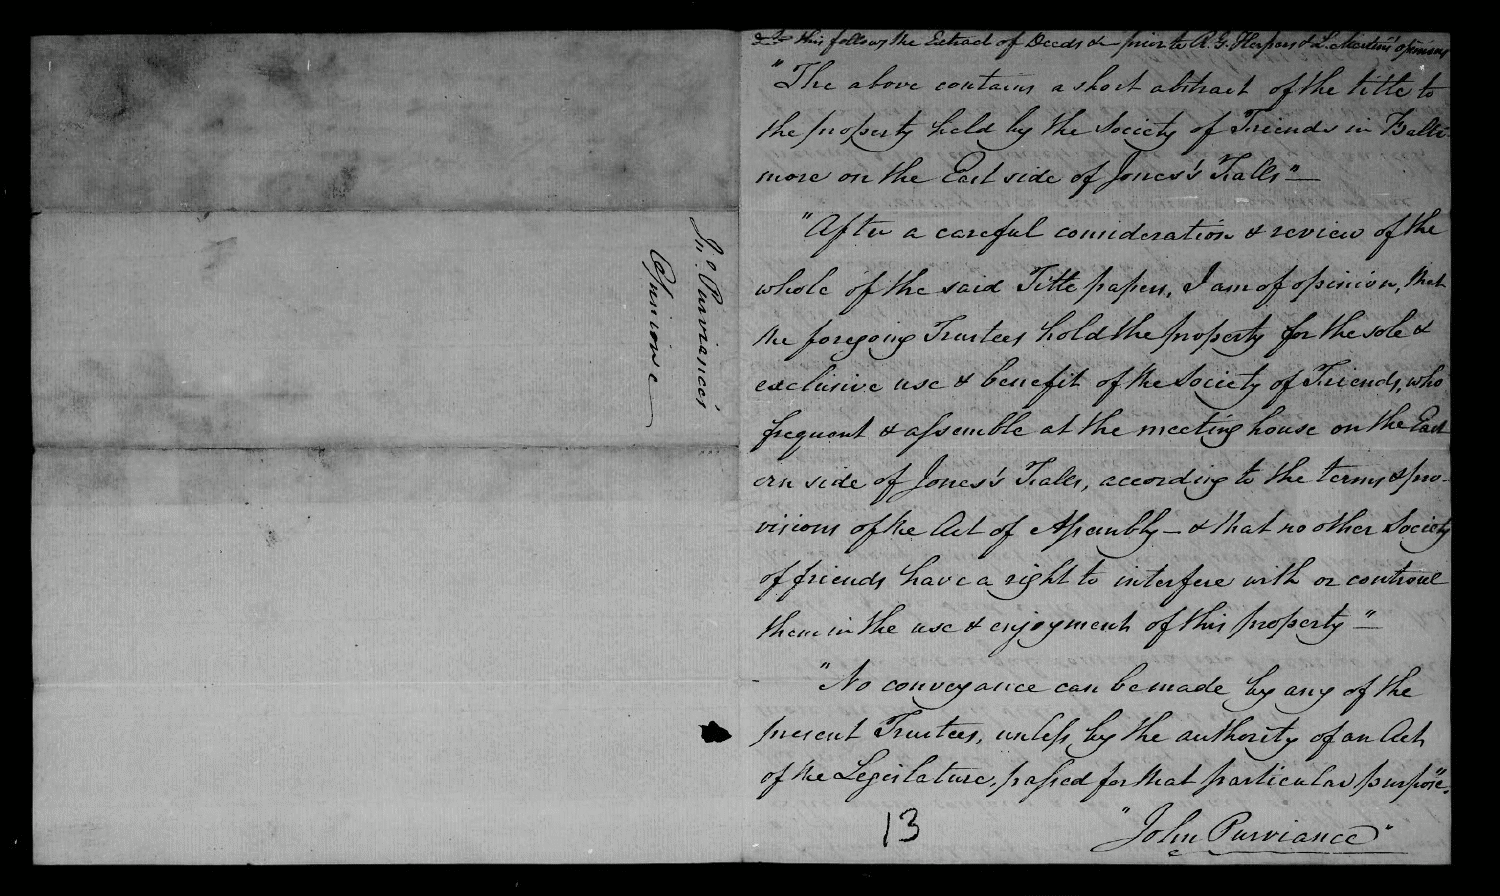 Jno. Purviance's
Opinion &c
this follows the Extract of Deeds &c prior to R. G. Harpers & L. Martins' opinions
"The above contains a short abstract of the title to
the property held by the Society of Friends in Balti-
more on the East side of Jones's Falls"—
"After a careful consideration & review of the
whole of the said Title papers, I am of opinion, that
the foregoing Trustees hold the property for the sole &
exclusive use & benefit of the Society of Friends, who
frequent & assemble at the meeting house on the East
ern side of Jones's Falls, according to the terms & pro-
visions of the Act of Assembly – & that no other Society
of friends have a right to interfere with or controul
them in the use & enjoyment of this property"—
"No conveyance can be made by any of the
present Trustees, unless by the authority of an Act
of the Legislature, passed for that particular purpose".
13
"John Purviance"